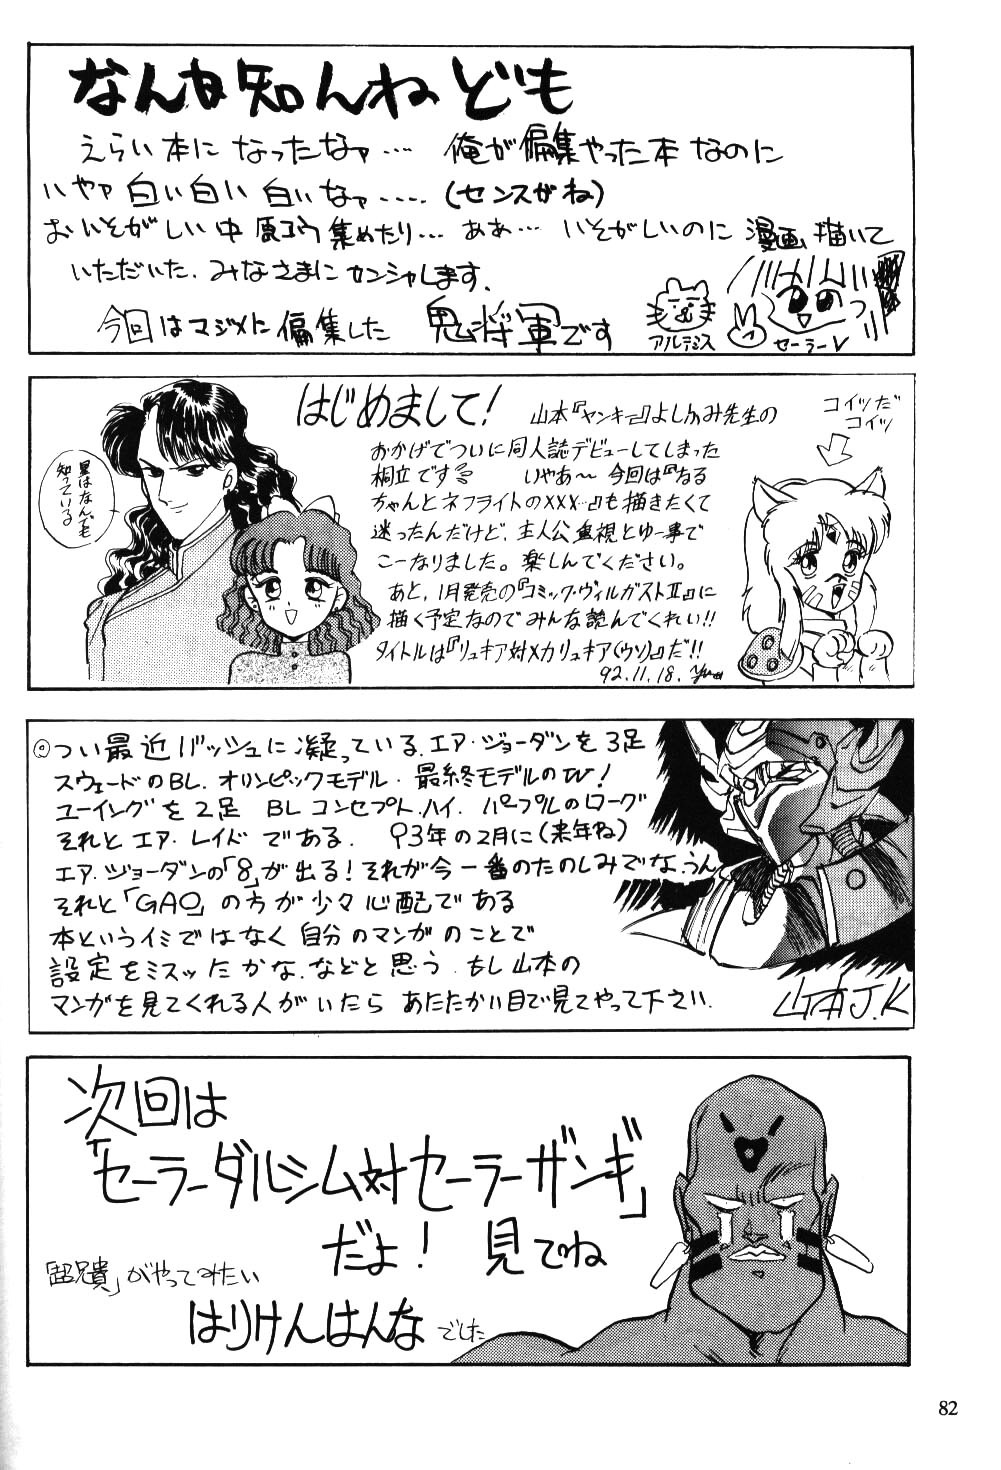 なんか知んねども
えらい本に なったなァ… 俺が偏集やった本 なのに
いやァ 白い白い 白いなァ…… (センスがね)
おいそがしい中 原コウ集めたり… ああ… いそがしいのに 漫画 描いて
いただいた、みなさまに カンシャします。
今回はマジメに偏集した 鬼将軍です
アルテミス
セーラーV
はじめまして!
山本『ヤンキー』よしふみ先生の
おかげでついに同人誌デビューしてしまった
桐立です いやあ〜 今回は『なる
ちゃんとネフライトの×××…』も描きたくて
迷ったんだけど、主人公重視とゆー事で
こーなりました。楽しんでください。
あと、1月発売の『コミック・ヴィルガストⅡ』に
描く予定なのでみんな読んでくれい!!
タイトルは『リュキア対メカリュキア(ウソ)』だ!!
92.11.18.
星はなんでも
知っている
コイツだ
コイツ
◎つい最近バッシュに凝っている、エア・ジョーダンを3足
スウェードのBL、オリンピックモデル・最終モデルのW!
ユーイングを2足 BLコンセプト、ハイ、パープルのローグ
それとエア・レイドである、 93年の2月に(来年ね)
エア・ジョーダンの「8」が出る!それが今一番のたのしみでな、うん
それと「GAO」の方が少々心配である
本というイミではなく自分のマンガのことで
設定をミスッたかな、などと思う もし山本の
マンガを見てくれる人がいたら あたたかい目で見てやって下さい.
山本J.K
次回は
「セーラーダルシム対セーラーザンギ」
だよ! 見てね
「超兄貴」がやってみたい
はりけんはんな でした
82